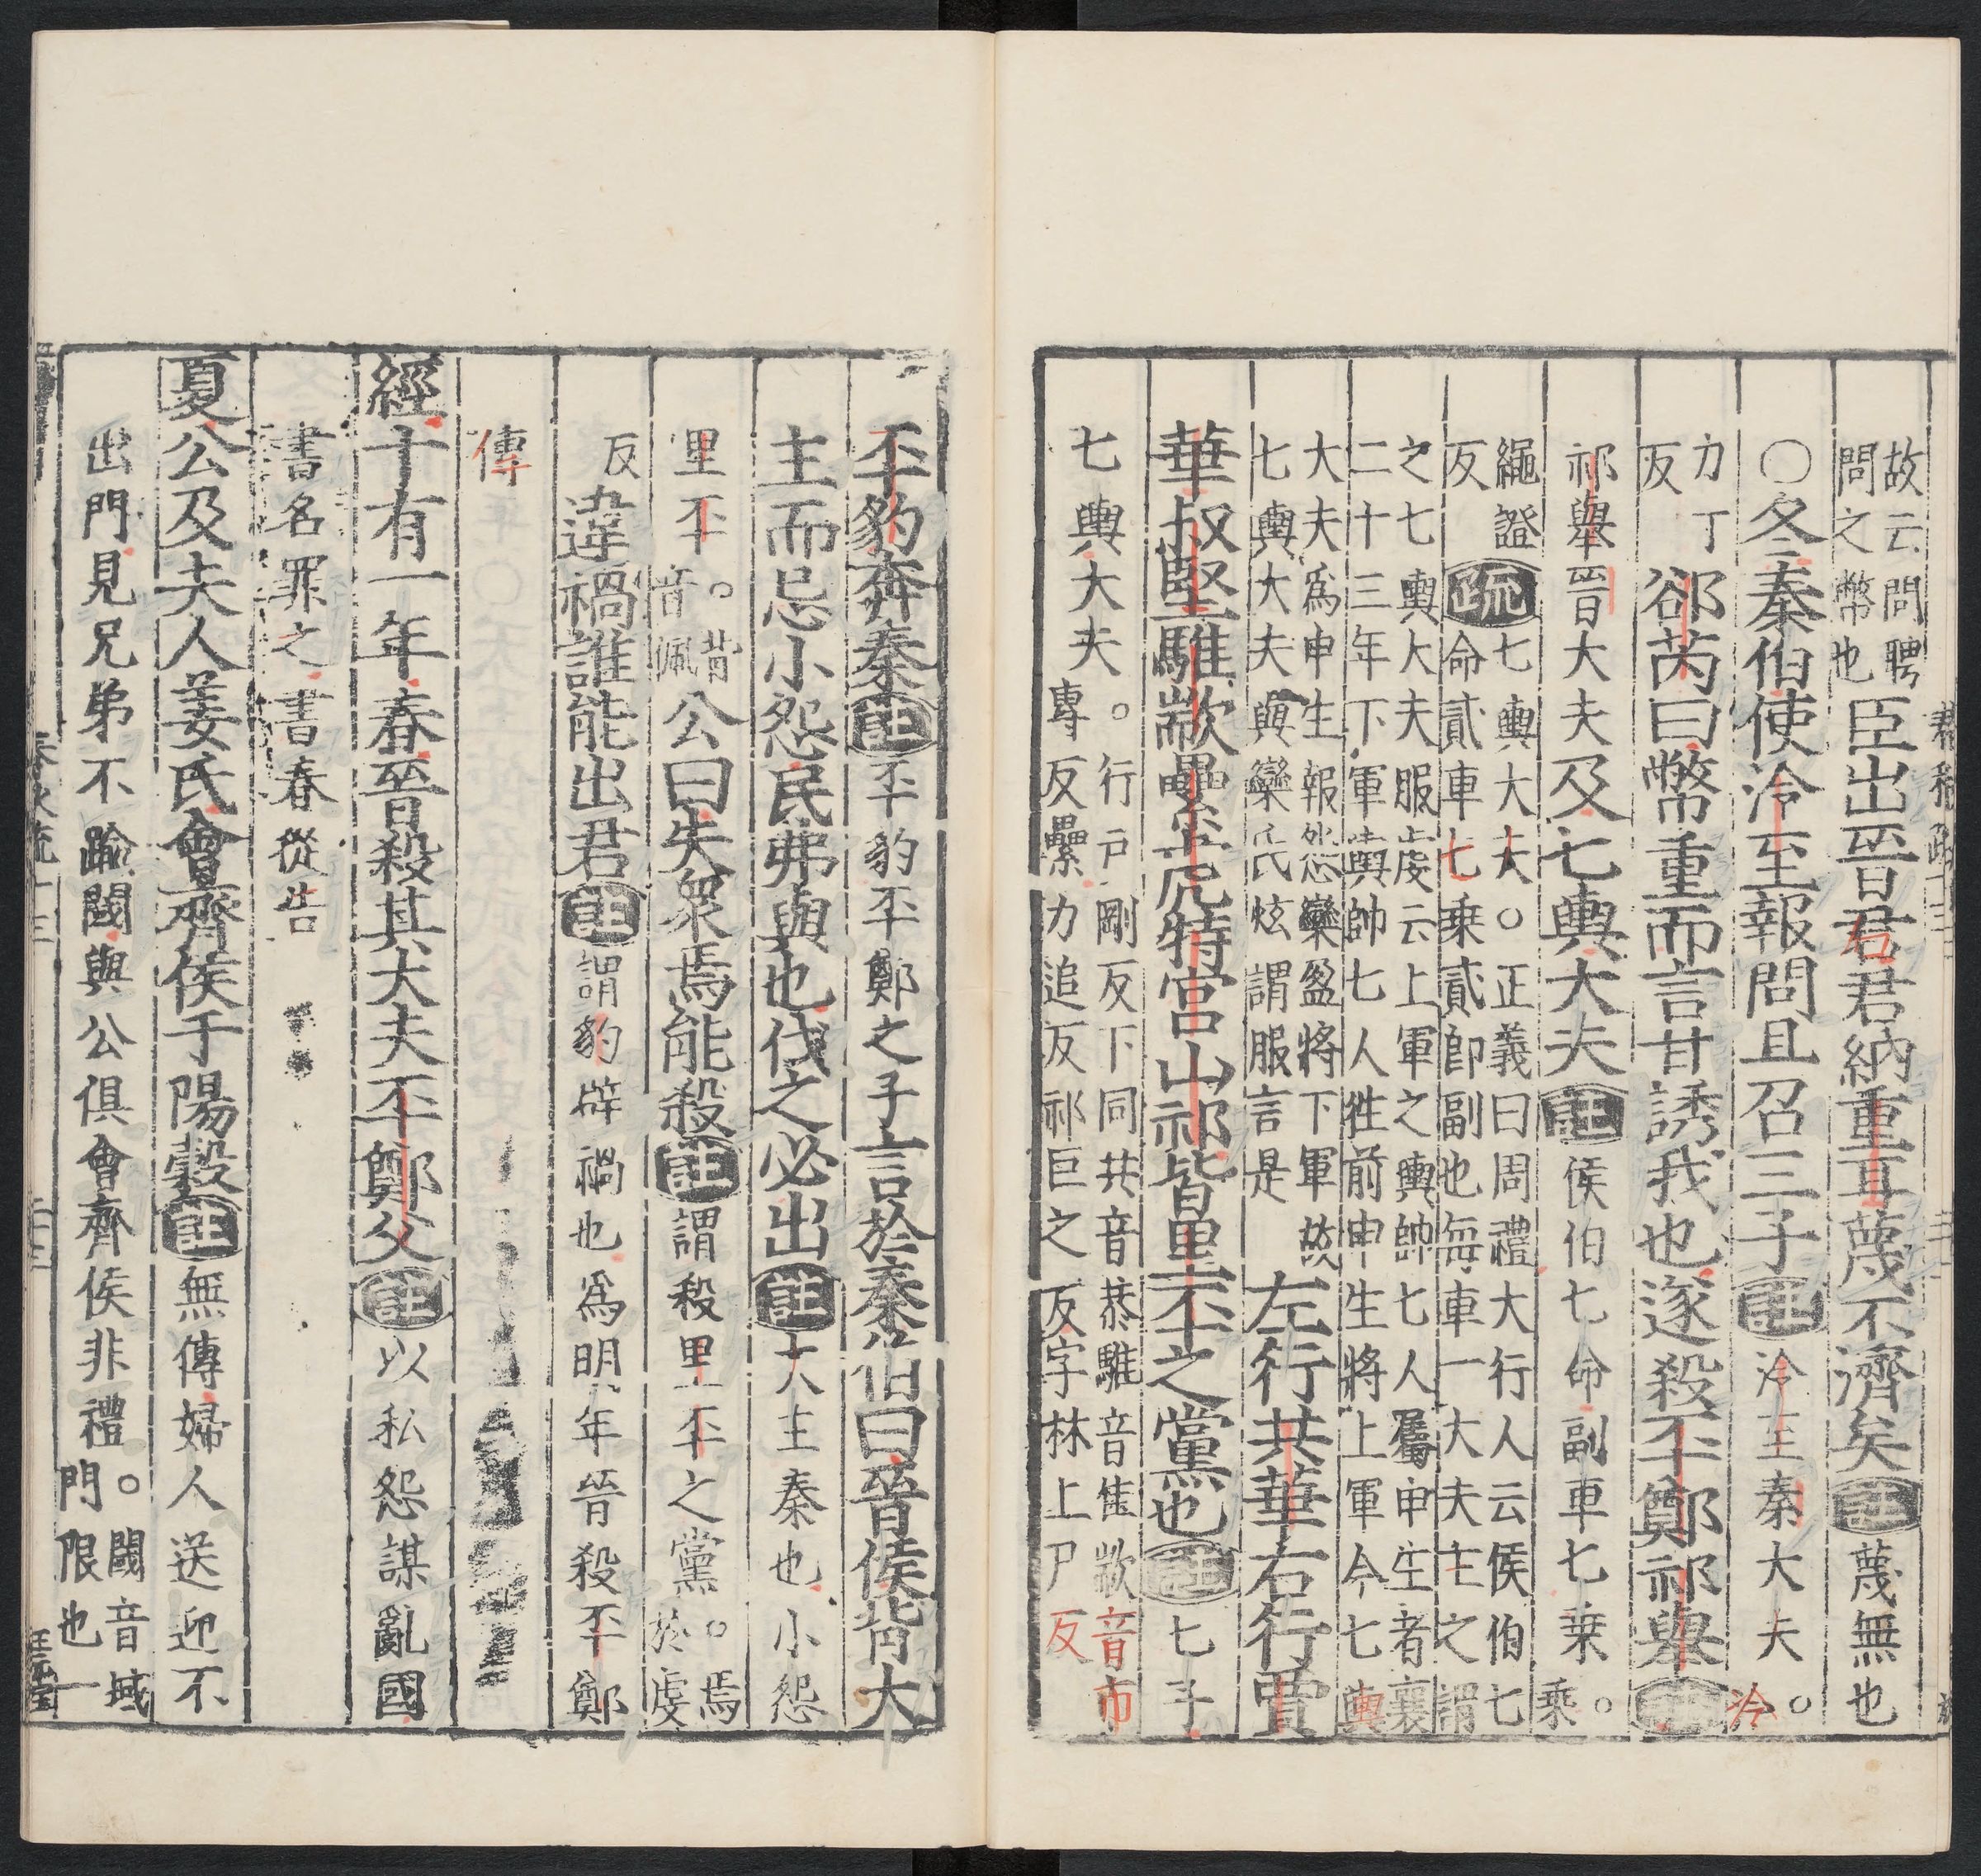 故云問聘
問之幣也
臣出晉君君納重耳蔑不濟矣註蔑無也
○冬秦伯使泠至報問且召三子註泠至秦大夫○泠
力丁
反
郤芮曰幣重而言甘誘我也遂殺丕鄭祁舉註
祁舉晉大夫及七輿大夫註侯伯七命副車七乗○乘
繩證
反
疏
七輿大夫○正義曰周禮大行人云侯伯七
命貳車七乗貳即副也每車一大夫主之謂
之七輿大夫服虔云上軍之輿帥七人屬申生者襄
二十三年下軍輿帥七人徃前申生將上軍今七輿
大夫爲申生報怨欒盈將下軍故
七輿大夫與欒氏炫謂服言是
左行共華右行賈
華叔堅騅歂纍虎特宮山祁皆里丕之黨也註七子
七輿大夫
○行戸剛反下同共音恭騅音隹歂音市
專反纍力追反祁巨之反字林上尸反
丕豹奔秦註丕豹丕鄭之子言於秦伯曰晉侯背大
主而忌小怨民弗與也伐之必出註大主秦也小怨
里丕
○背
音佩
公曰失衆焉能殺註謂殺里丕之黨
○焉
於虔
反
違禍誰能出君註謂豹辟禍也爲明年晉殺丕鄭
傳
經十有一年春晉殺其大夫丕鄭父註以私怨謀亂國
書名罪之書春從告
夏公及夫人姜氏會齊侯于陽穀註無傳婦人送迎不
出門見兄弟不踰閾與公俱會齊侯非禮
○閾音域一
門限也